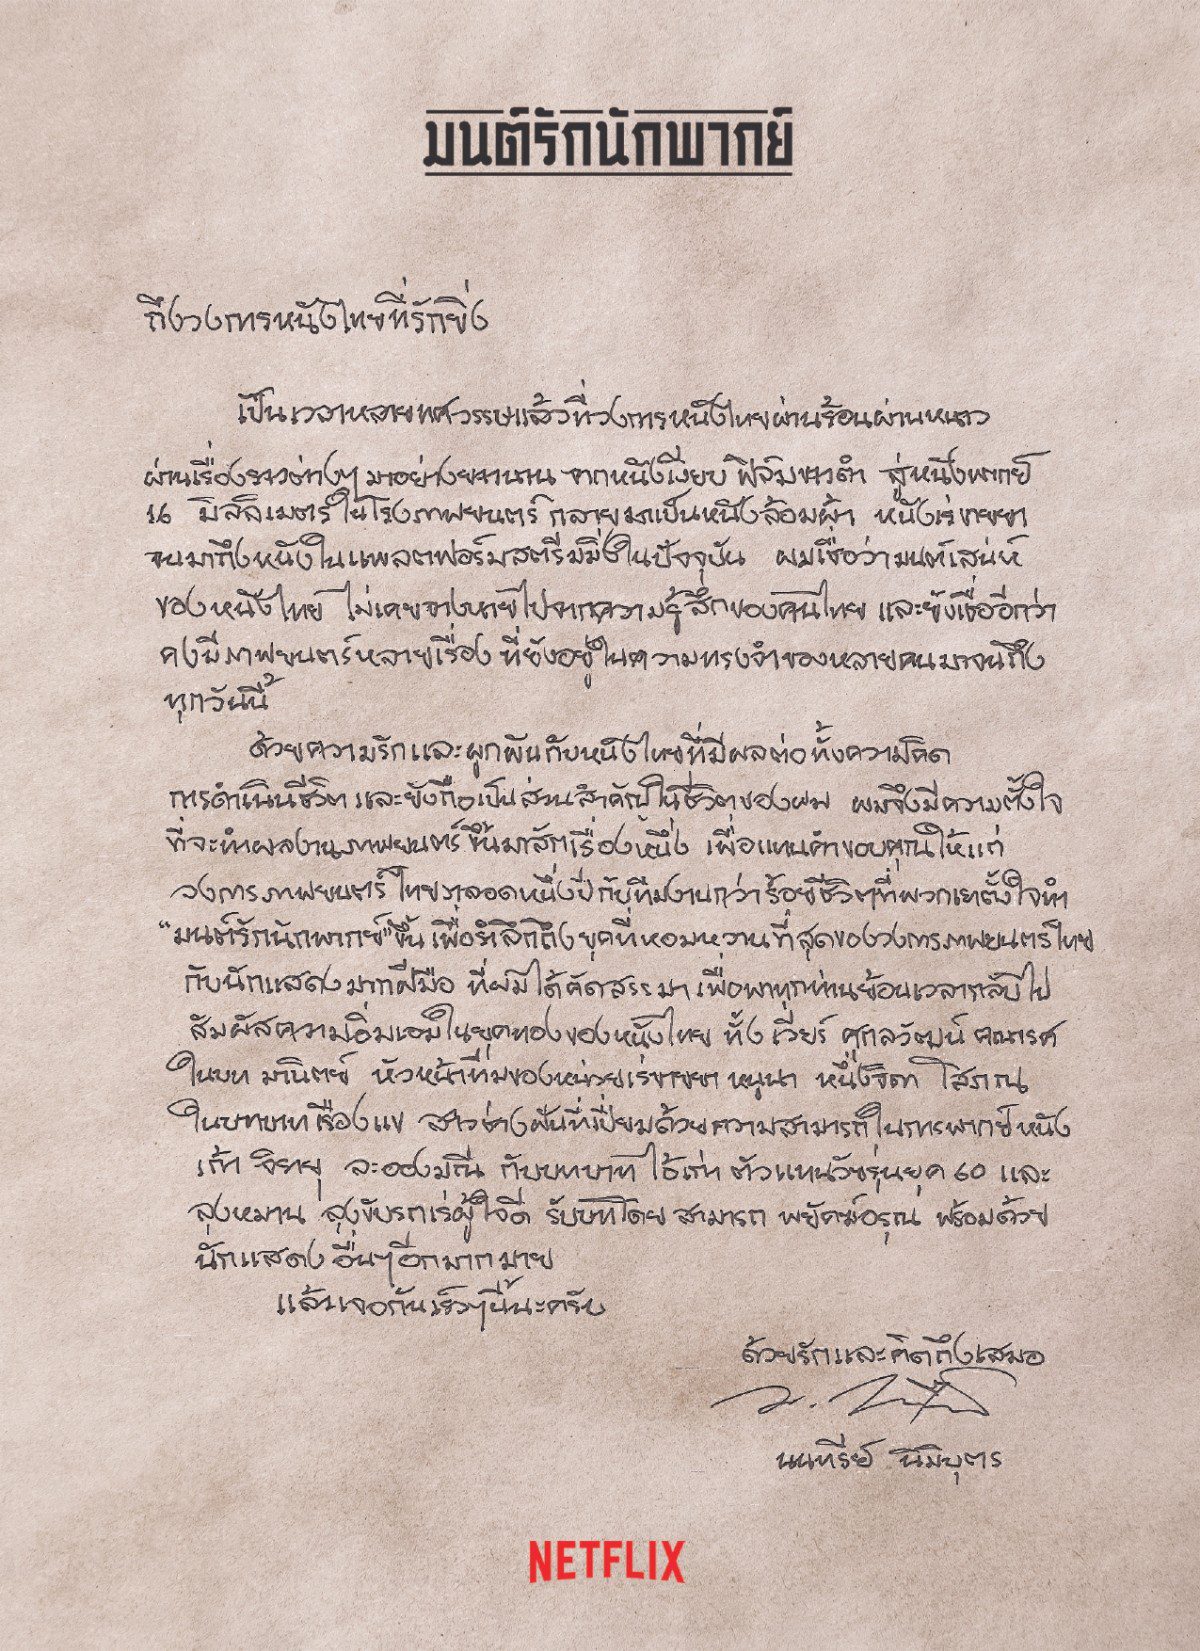 มนต์รักนักพากย์
ถึงวงการหนังไทยที่รักยิ่ง
เป็นเวลาหลายทศวรรษแล้วที่วงการหนังไทยผ่านร้อนผ่านหนาว
ผ่านเรื่องราวต่างๆ มาอย่างยาวนาน จากหนังเงียบ ฟิล์มขาวดำ สู่หนังพากย์
16 มิลลิเมตรในโรงภาพยนตร์ กลายมาเป็นหนังล้อมผ้า หนังเร่ขายยา
จนมาถึงหนังในแพลตฟอร์มสตรีมมิ่งในปัจจุบัน ผมเชื่อว่ามนต์เสน่ห์
ของหนังไทย ไม่เคยจางหายไปจากความรู้สึกของคนไทย และยังเชื่ออีกว่า
คงมีภาพยนตร์หลายเรื่อง ที่ยังอยู่ในความทรงจำของหลายคนมาจนถึง
ทุกวันนี้
ด้วยความรักและผูกพันกับหนังไทยที่มีผลต่อทั้งความคิด
การดำเนินชีวิต และยังถือเป็นส่วนสำคัญในชีวิตของผม ผมจึงมีความตั้งใจ
ที่จะทำผลงานภาพยนตร์ขึ้นมาสักเรื่องหนึ่ง เพื่อแทนคำขอบคุณให้แก่
วงการภาพยนตร์ไทยตลอดหนึ่งปีกับทีมงานกว่าร้อยชีวิตที่พวกเราตั้งใจทำ
"มนต์รักนักพากย์"ขึ้น เพื่อรำลึกถึงยุคที่หอมหวานที่สุดของวงการภาพยนตร์ไทย
กับนักแสดงมากฝีมือ ที่ผมได้คัดสรรมา เพื่อพาทุกท่านย้อนเวลากลับไป
สัมผัสความอิ่มเอมในยุคทองของหนังไทย ทั้ง เวียร์ ศุกลวัฒน์ คณารศ
ในบท มานิตย์ หัวหน้าทีมของหน่วยเร่ขายยา หนูนา หนึ่งธิดา โสภณ
ในบทบาทเรืองแข สาวช่างฝันที่เปี่ยมด้วยความสามารถในการพากย์หนัง
เก้า จิรายุ ละอองมณี กับบทบาท ไอ้เก่า ตัวแทนวัยรุ่นยุค 60 และ
ลุงหมาน ลุงขับรถเร่ผู้ใจดี รับบทโดย สามารถ พยัคฆ์อรุณ พร้อมด้วย
นักแสดงอื่นๆอีกมากมาย
แล้วเจอกันเร็วๆนี้นะครับ
ด้วยรักและคิดถึงเสมอ
นนทรีย์ นิมิบุตร
NETFLIX